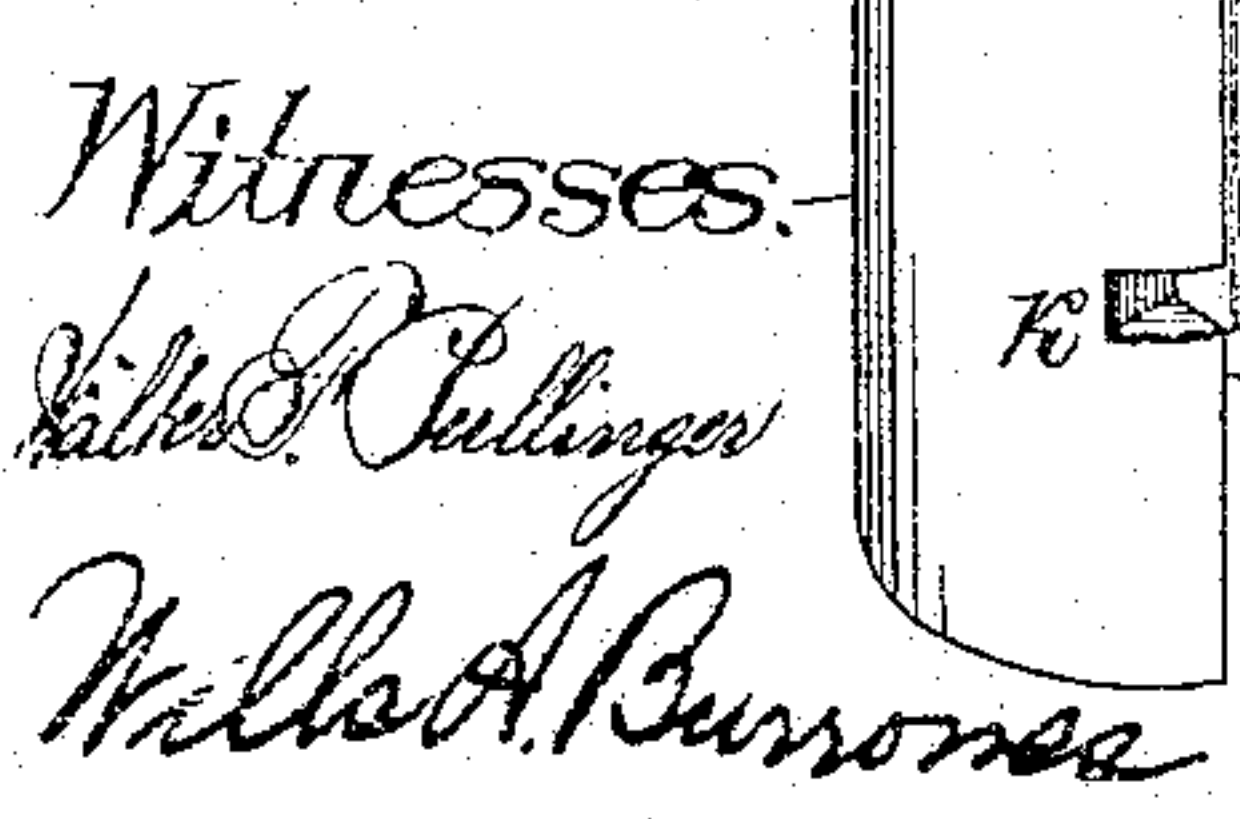 Witnesses.
K
Walter G. Pullinger
Wills A. Burrowes